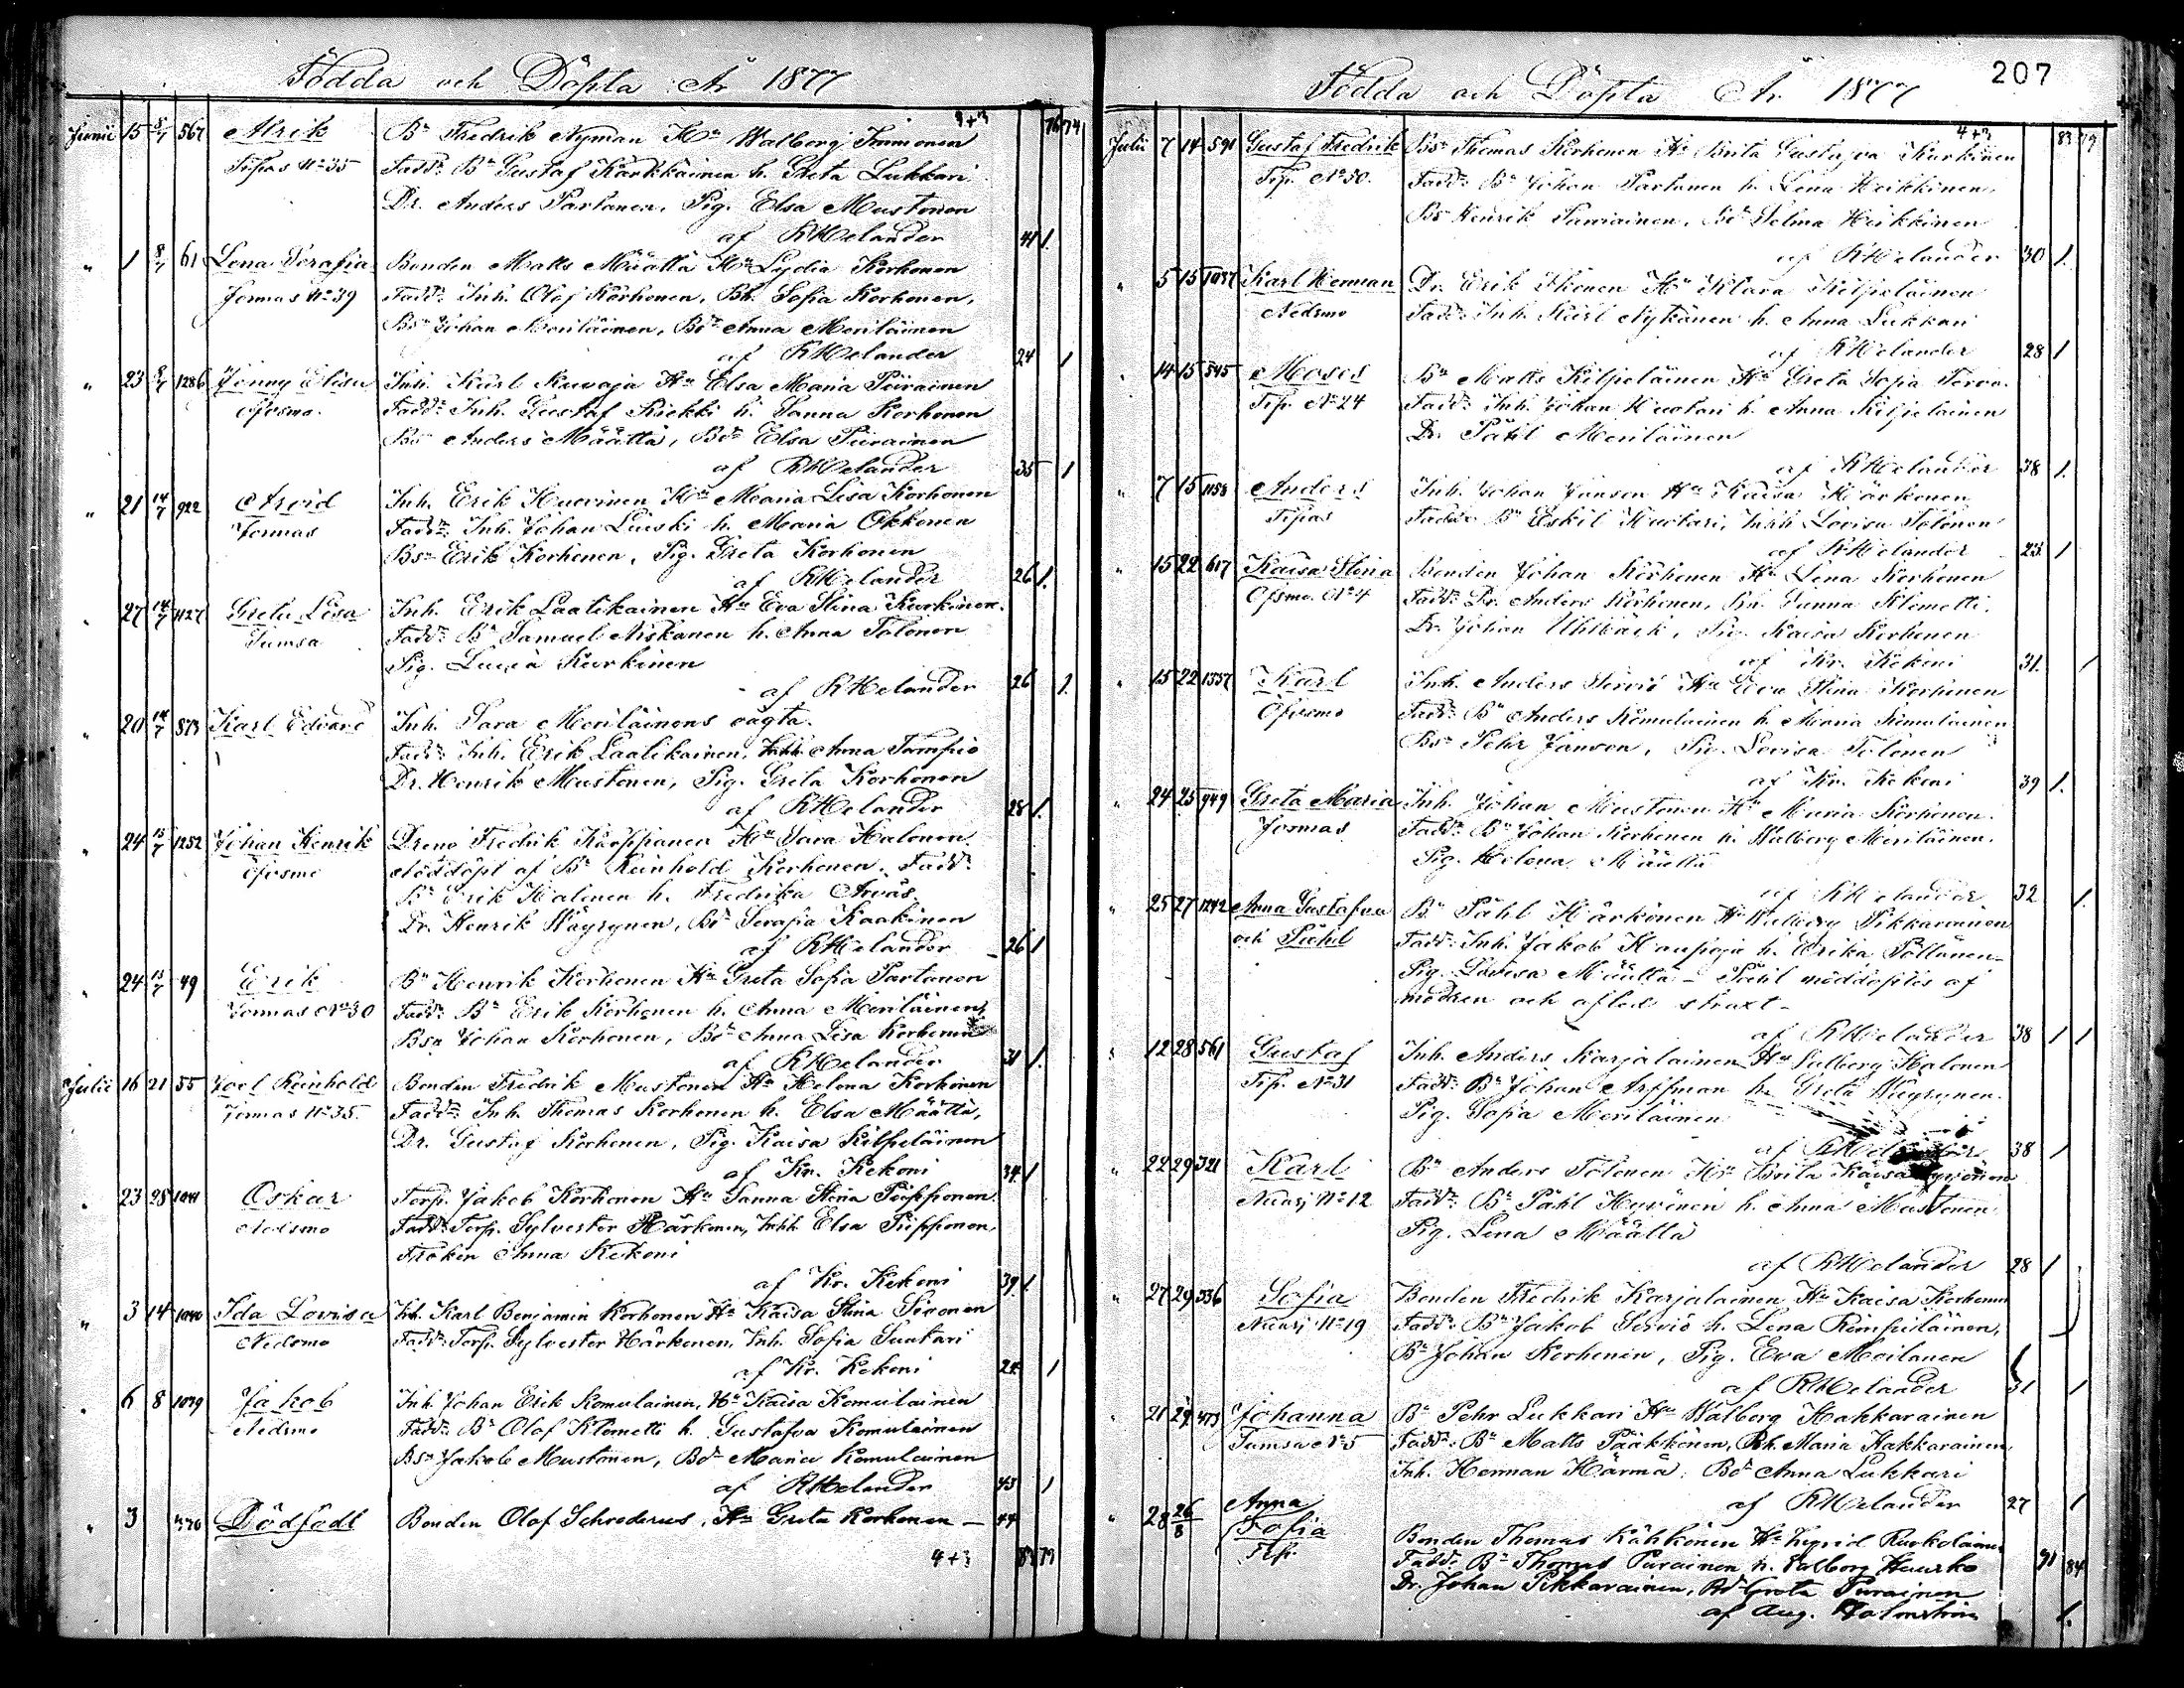 207
Födda och Döpta År 1877
4+3 76 74
Junii 15 8/7 567 Alrik Bn Fredrik Nyman Hu Walborg Immonen
Tipas No 35 Fadd: Bn Gustaf Karkkainen h. Greta Lukkari
Dr. Anders Partanen, Pig. Elsa Mustonen
af RHelander 41 1.
" 1 8/7 61 Lena Serafia Bonden Matts Määttä Hu Lydia Korhonen
Jormas No 39 Fadd: Inh. Olof Korhonen, Bh. Sofia Korhonen,
Bsn Johan Meriläinen, Bdr Anna Meriläinen
af RHelander 24 1
" 23 8/7 1286 Jenny Elisa Inh. Karl Kuvaja Hu Elsa Maria Piirainen
Öfvsmo. Fadd: Inh. Gustaf Kiekki h. Sanna Korhonen
Bsn Anders Määttä, Bdr Elsa Piirainen
af RHelander 35 1
" 21 14/7 922 Arvid Inh. Erik Huovinen Hu Maria Lisa Korhonen
Jormas Fadd: Inh. Johan Luiski h. Maria Okkonen
Bsn Erik Korhonen, Pig. Greta Korhonen
af RHelander 26 1.
" 27 14/7 1127 Greta Lisa Inh. Erik Laatikainen Hu Eva Stina Kurkinen.
Sumsa Fadd: Bn Samuel Niskanen h. Anna Tolonen
Pig. Lucia Kurkinen
af RHelander 26 1.
" 20 14/7 873 Karl Edvard Inh. Sara Meriläinens oägta.
Fadd: Inh. Erik Laatikainen, Inhh Anna Tampio
Dr. Henrik Mustonen, Pig. Greta Korhonen
af RHelander 28 1.
" 24 15/7 1252 Johan Henrik Dreng Fredrik Karppanen Hu Sara Halonen
Öfvsmo Nöddöpt af Bn Reinhold Korhonen. Fadd:
Bn Erik Halonen h. Fredrika Arvås,
Dr. Henrik Wäyrynen, Bd Serafia Kaakinen
af RHelander 26 1
" 24 15/7 49 Erik Bn Henrik Korhonen Hu Greta Sofia Partanen
Jormas No 30 Fadd: Bn Erik Korhonen h. Anna Meriläinen,
Bsn Johan Korhonen, Bdr Anna Lisa Korhonen
af RHelander 31 1.
Julii 16 21 55 Joel Reinhold Bonden Fredrik Mustonen Hu Helena Korhonen
Jormas No 35. Fadd: Inh. Thomas Korhonen h. Elsa Määttä,
Dr. Gustaf Korhonen, Pig. Kaisa Kilpeläinen
af Kr. Kekoni 34 1
" 23 28 1041 Oskar Torp. Jakob Korhonen Hu Sanna Stina Piipponen
Nedsmo Fadd: Torp. Sylvester Härkönen, Inhh Elsa Piipponen,
Fröken Anna Kekoni
af Kr. Kekoni 39 1
" 3 14 1040 Ida Lovisa Inh. Karl Benjamin Korhonen Hu Kaisa Stina Sivonen
Nedsmo Fadd: Torp. Sylvester Härkönen, Inh. Sofia Suutari
af Kr. Kekoni 24 1
" 6 8 1079 Jakob Inh. Johan Erik Komulainen, Hu Kaisa Komulainen
Nedsmo Fadd: Bn Olof Klemetti h. Gustafva Komulainen
Bsn Jakob Mustonen, Bdr Maria Komulainen
af RHelander 43 1
" 3 Dödfödt Bonden Olof Schroderus, Hu Greta Korhonen — 44
4+3
Födda och Döpta År 1877
4+3 83 79
Julii 7 14 591 Gustaf Fredrik Bsn Thomas Korhonen Hu Brita Gustafva Kurkinen
Tip. No 50. Fadd: Bn Johan Partanen h. Lena Heikkinen,
Bsn Henrik Parviainen, Bdr Selma Heikkinen
af RHelander 30 1.
" 5 15 1037 Karl Herman Dr. Erik Ikonen Hu Klara Kilpeläinen
Nedsmo Fadd: Inh. Karl Nykänen h. Anna Lukkari
af RHelander 28 1
" 14 15 545 Moses Bn Matts Kilpeläinen Hu Greta Sofia Terva.
Tip. No 24 Fadd: Inh. Johan Huotari h. Anna Kilpeläinen
Dr. Påhl Meriläinen
af RHelander 38 1.
" 7 15 1158 Anders Inh. Johan Jansen Hu Kaisa Härkönen
Tipas Fadd: Bn Eskil Huotari, Inhh Lovisa Tolonen
af RHelander 23 1
" 15 22 617 Kaisa Stina Bonden Johan Korhonen Hu Lena Korhonen
Öfsmo. No 4 Fadd: Dr. Anders Korhonen, Bh. Sanna Klemetti.
Dr. Johan Uhlbäck, Pig. Kaisa Korhonen
af Kr. Kekoni 31. 1
" 15 22 1337 Karl Inh. Anders Serviö Hu Eva Stina Korhonen
Öfvsmo Fadd: Bn Anders Komulainen h. Maria Komulainen
Bsn Pehr Janson, Pig. Lovisa Tolonen
af Kr. Kekoni 39 1.
" 24 25 949 Greta Maria Inh. Johan Mustonen Hu Maria Korhonen.
Jormas Fadd: Bn Johan Korhonen h. Walborg Meriläinen.
Pig. Helena Määttä
af RHelander 32 1.
" 25 27 1242 Anna Gustafva Bn Påhl Härkönen Hu Walborg Pikkarainen
och Påhl Fadd: Inh. Jakob Haapoja h. Erika Pöllänen
Pig. Lovisa Määttä — Påhl nöddöptes af
modren och afled straxt —
af RHelander 38 1 1
" 12 28 561 Gustaf Inh. Anders Karjalainen Hu Walborg Halonen
Tip. No 31 Fadd: Bn Johan Arffman h. Greta Wäyrynen.
Pig. Sofia Meriläinen
af RHelander 38 1
" 22 29 321 Karl Bn Anders Tolonen Hu Brita Kaisa
Nuasj No 12 Fadd: Bn Påhl Hyvönen h. Anna Mustonen
Pig. Lena Määttä
af RHelander 28 1
" 27 29 336 Sofia Bonden Fredrik Karjalainen Hu Kaisa Korhonen
Nuasj No 19 Fadd: Bn Jakob Serviö h. Lena Rimpiläinen,
Bn Johan Korhonen, Pig. Eva Moilanen
af RHelander 31 1
" 21 29 473 Johanna Bn Pehr Lukkari Hu Walborg Hakkarainen
Sumsa No 5 Fadd: Bn Matts Pääkkönen, Bh. Maria Hakkarainen,
Inh. Herman Härmä, Bdr Anna Lukkari
af RHelander 27 1
" 28 26/8 Anna
Sofia Bonden Thomas Kähkönen Hu Ingrid
Tip. Fadd: Bn Thomas Purainen h. Valborg Haurko 91 84
Dr. Johan Pikkarainen, Bdr Greta Purainen
af Aug. Holmström 1.